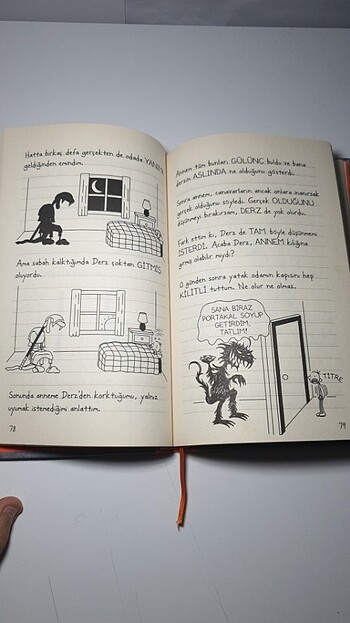 Hatta birkaç defa gerçekten de odada YANIMA
geldiğinden emindim.
Ama sabah kalktığımda Derz çoktan GİTMİŞ
oluyordu.
Sonunda anneme Derz'den korktuğumu, yalnız
uyumak istemediğimi anlattım.
78
Annem tüm bunları GÜLÜNÇ buldu ve bana
derzin ASLINDA ne olduğunu gösterdi.
Sonra annem, canavarların ancak onlara inanırsak
gerçek olduğunu söyledi. Gerçek OLDUĞUNU
düşünmeyi bırakırsam, DERZ de yok olurdu.
Fark ettim ki, Derz de TAM böyle düşünmemi
İSTERDİ. Acaba Derz, ANNEM kılığına
girmiş olabilir miydi?
O günden sonra yatak odamın kapısını hep
KİLİTLİ tuttum. Ne olur ne olmaz.
SANA BİRAZ
PORTAKAL SOYUP
GETİRDİM,
TATLIM!
TİTRE
79